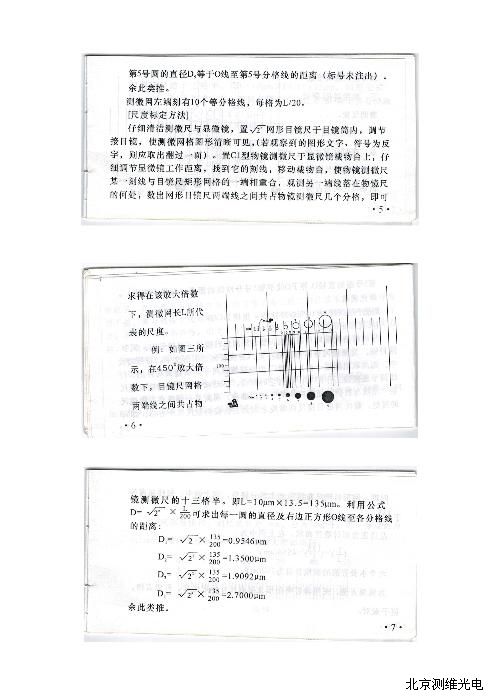 第5号圆的直径D₅等于O线至第5号分格线的距离（标号未注出）。
余此类推。
测微网左端刻有10个等分格线，每格为L/20。
[尺度标定方法]
仔细清洁测微尺与显微镜，置√2网形目镜尺于目镜筒内，调节
接目镜，使测微网格图形清晰可见，（若观察到的图形文字，符号为反
字，则应取出翻过一面）。置C1型物镜测微尺于显微镜载物台上，仔
细调节显微镜工作距离，找到它的刻线，移动载物台，使物镜测微尺
某一刻线与目镜尺矩形网格的一端相重合，观测另一端线落在物镜尺
的何处，数出网形目镜尺两端线之间共占物镜测微尺几个分格，即可
·5·
求得在该放大倍数
下，测微网长L所代
表的尺度。
例：如图三所
示，在450ˣ放大倍
数下，目镜尺网格
两端线之间共占物
·6·
镜测微尺的十三格半。即L=10μm×13.5=135μm。利用公式
可求出每一圆的直径及右边正方形O线至各分格线
的距离：
余此类推。
·7·
北京测维光电